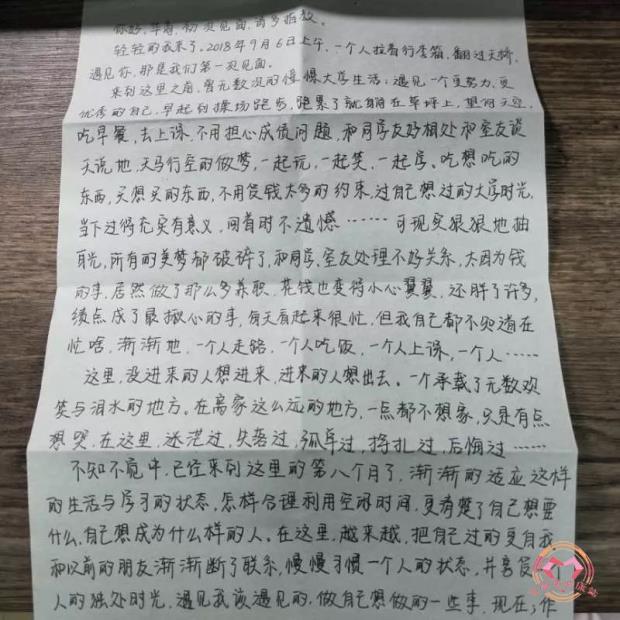 你好,华商,初次见面,请多指教。
轻轻的我来了。2018年9月6日上午,一个人拉着行李箱,翻过天桥,
遇见你,那是我们第一次见面。
来到这里之前,曾无数次的憧憬大学生活;遇见一个更努力,更
优秀的自己,早起到操场跑步,跑累了就躺在草坪上,望向天空,
吃早餐,去上课,不用担心成绩问题,和同学友好相处和室友谈
天说地,天马行空的做梦,一起玩,一起笑,一起学。吃想吃的
东西,买想买的东西,不用受钱太多的约束,过自己想过的大学时光,
当下过得充实有意义,回首时不遗憾……可现实狠狠地抽
耳光,所有的美梦都破碎了,和同学,室友处理不好关系,太因为钱
的事,居然做了那么多兼职,花钱也变得小心翼翼,还胖了许多,
绩点成了最揪心的事,每天看起来很忙,但我自己都不知道在
忙啥,渐渐地,一个人走路,一个人吃饭,一个人上课,一个人……
这里,没进来的人想进来,进来的人想出去。一个承载了无数欢
笑与泪水的地方。在离家这么远的地方,一点都不想家,只是有点
想哭,在这里,迷茫过,失落过,孤单过,挣扎过,后悔过……
不知不觉中,已经来到这里的第八个月了,渐渐的适应这样
的生活与学习的状态,怎样合理利用空闲时间,更清楚了自己想要
什么,自己想成为什么样的人。在这里,越来越,把自己过的更自我
和以前的朋友渐渐断了联系,慢慢习惯一个人的状态,并享受
人的独处时光,遇见我该遇见的,做自己想做的一些事,现在,作